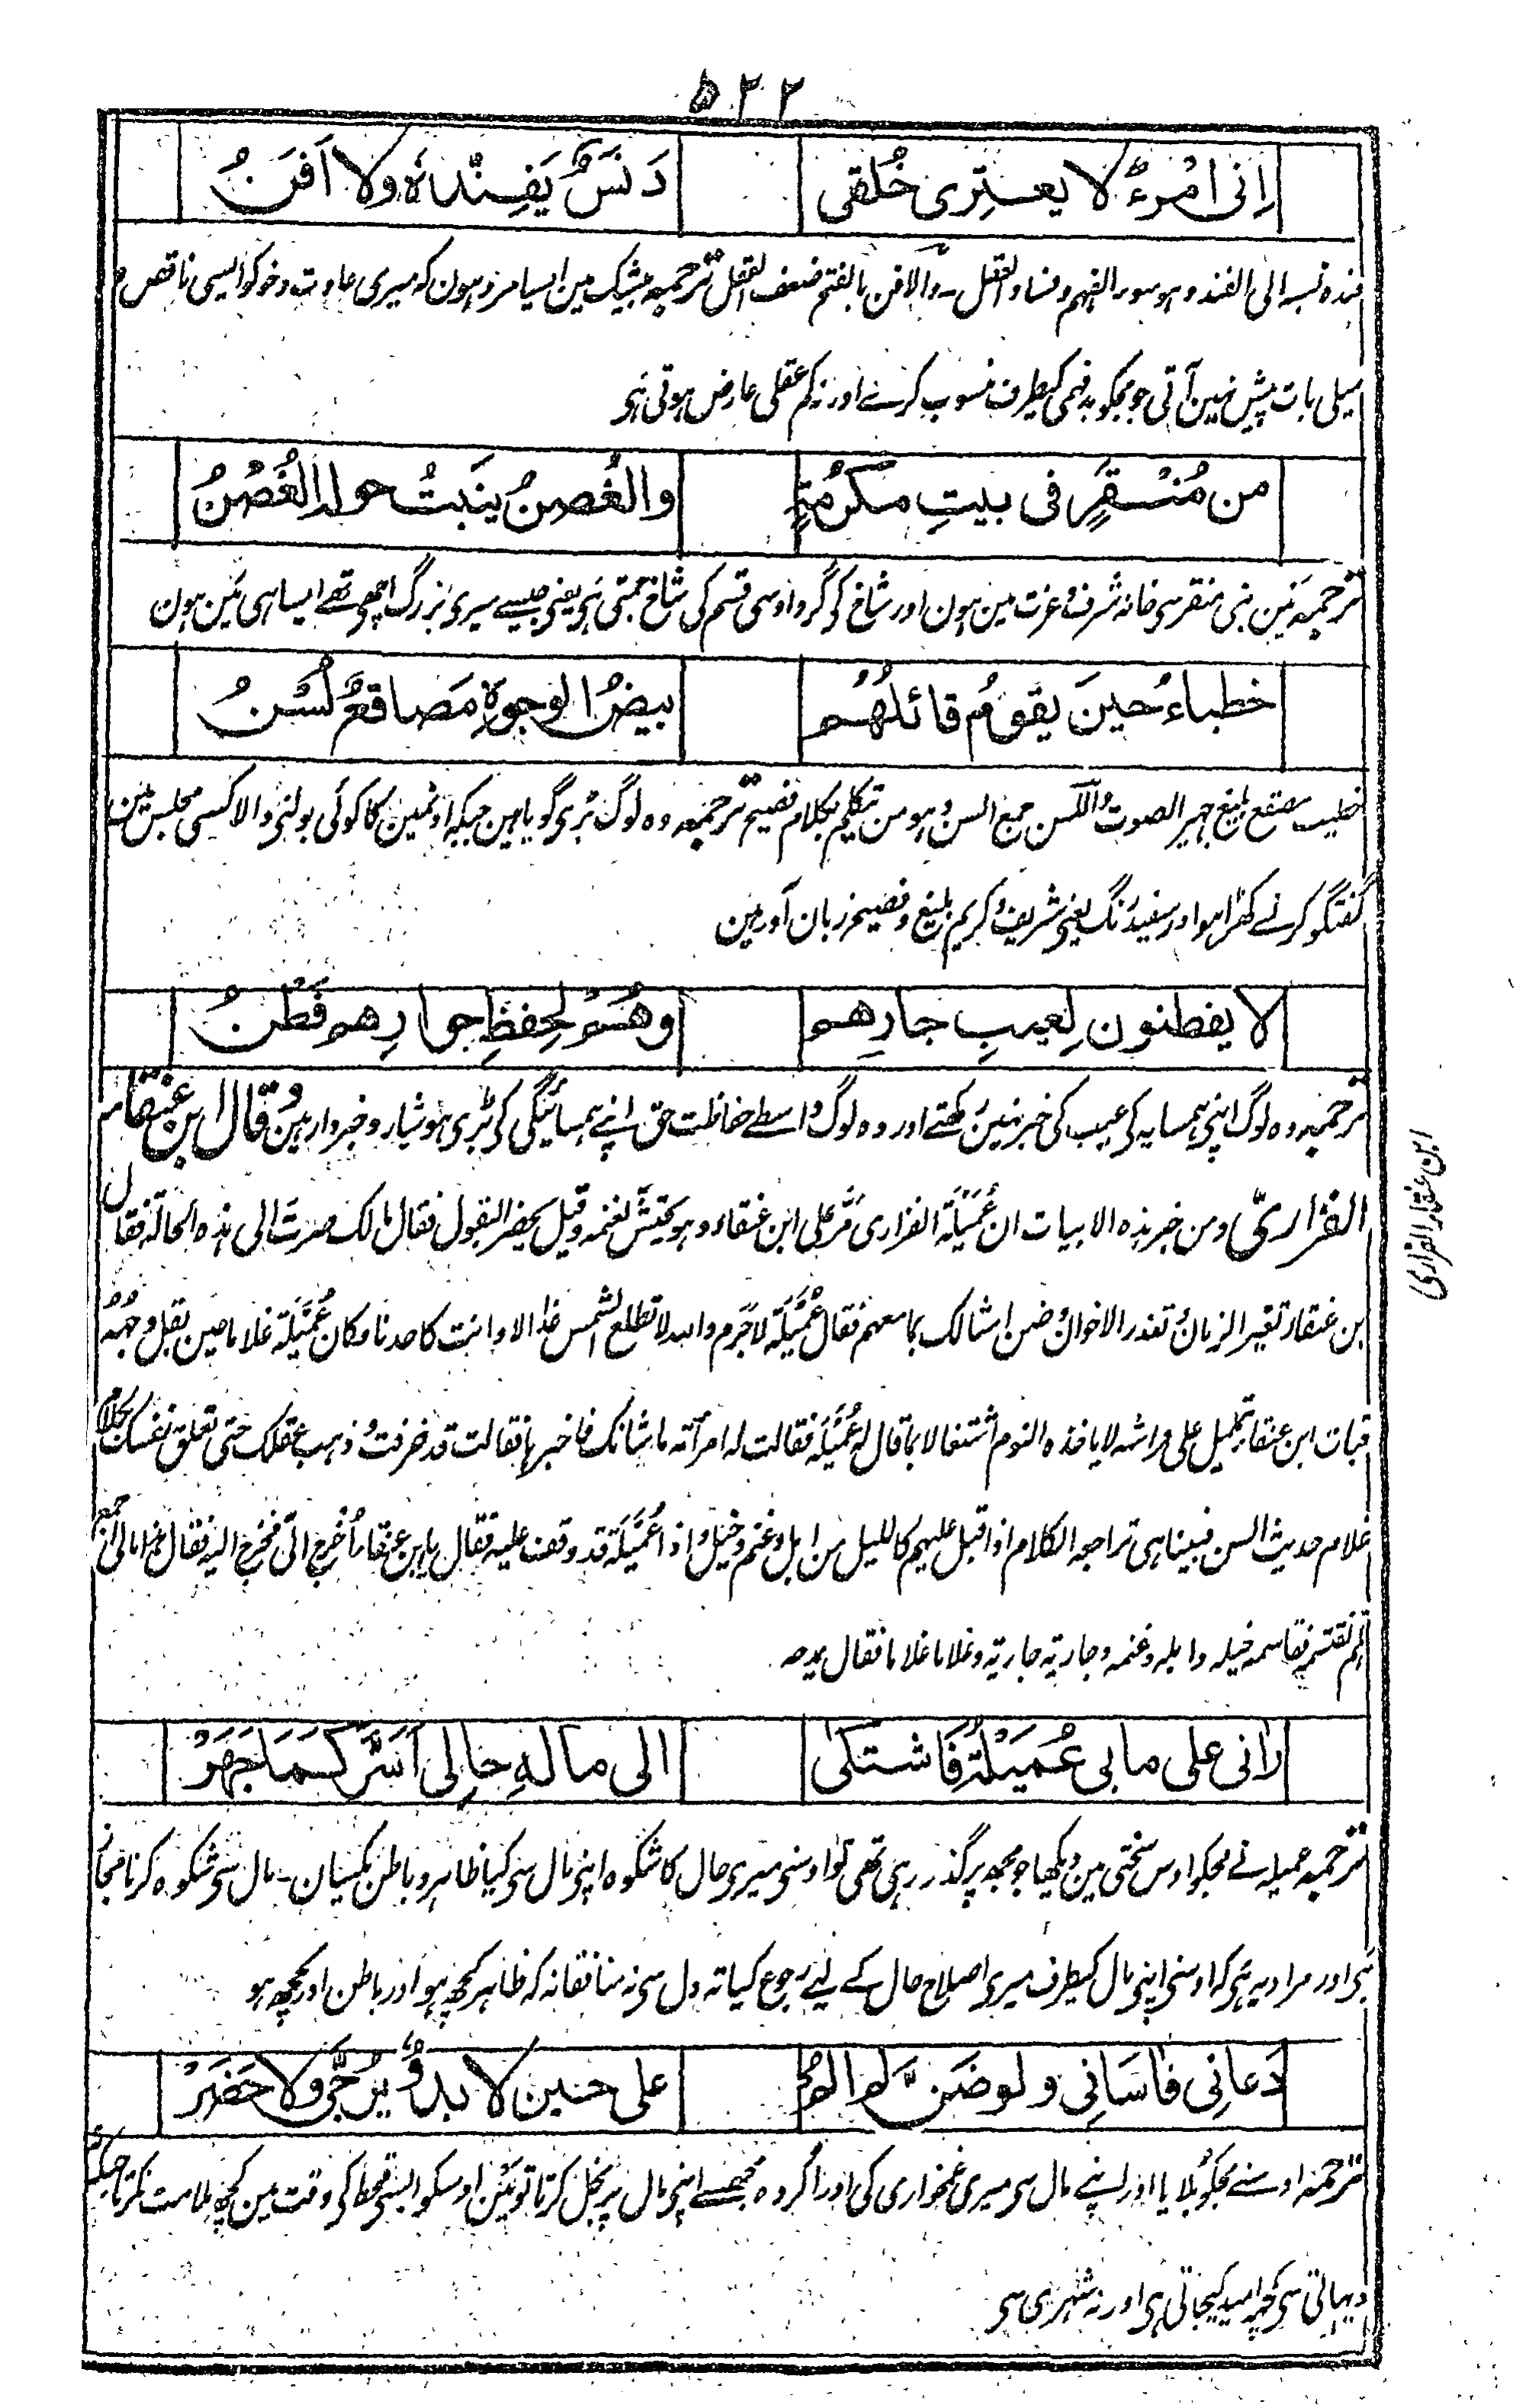 ۵۲۲
اِنی امْرءٌ لا یعتری خُلقی دَنَسٌ یُفَنِّدُہٗ ولا اَفَنُ
فندہ نسبہ الی الفند وہو سوء الفہم وفساد العقل۔ والافن بالفتح ضعف العقل ترجمہ بیشک مین ایسا مرد ہون کہ میری عادت وخو کو ایسی ناقص
میلی بات پیش نہین آتی جو مجکو بدفہمی کیطرف منسوب کرنے اور نہ کم عقلی عارض ہوتی ہی
من مُنْقَرٍ فی بیتِ مَکرُمَۃٍ والغُصنُ ینبَتُ حولہ الغُصْنُ
ترجمہ مین بنی منقر سی خانہ شرف وعزت مین ہون اور شاخ کی گرد اوسی قسم کی شاخ جمتی ہی یعنی جیسے میری بزرگ اچھی تھے ایسا ہی مین ہون
خطباءُ حینَ یقومُ قائلُھُم بیضُ الوجوہِ مَصاقعٌ لُسُنُ
خطیب مصقع بلیغ جہیر الصوت واللسن جمع السن وہو من تیکلم بکلام فصیح ترجمہ وہ لوگ بڑی گویا ہین جبکہ اونمین کا کوئی بولنی والا کسی مجلس مین
گفتگو کرنے کھڑا ہو اور سفید رنگ یعنی شریف وکریم بلیغ وفصیح زبان آور ہین
لا یفطنون لِعیبِ جارِھم وھُمُ لِحِفظِ جوارِھم فُطْنُ
ترجمہ وہ لوگ اپنی ہمسایہ کی عیب کی خبر نہین رکھتے اور وہ لوگ واسطے حفاظت حق اپنے ہمسائیگی کی بڑی ہوشیار وخبردار ہین وقال ابن عنقاء
الفزاریّ ومن خبر ہذہ الابیات ان عُمَیْلَۃ الفزاری مَرَّ علی ابن عنقاء وہو یحتش لغنمہ وقیل یحفر البقول فقال مالک صرت الی ہذہ الحالۃ فقال
ابن عنقاء تغیر الزمان وتعذر الاخوان وضن امثالک بما معہم فقال عُمَیْلَۃ لاجرم واللہ لا تطلع الشمس غدا الا وانت کاحدنا وکان عُمَیْلَۃ غلاما حین بقل وجہُہ
فبات ابن عنقاء یتململ علی فراشہ لا یاخذہ النوم اشتغالا بما قال لہ عُمَیْلَۃ فقالت لہ امرأتہ ماشانک فاخبرہا فقالت قد خرفت وذہب عقلک حتی تعلق نفسک بکلام
غلام حدیث السن فبینا ہی تراجعہ الکلام اذ اقبل علیہم کاللیل من ابل وغنم وخیل واذا عُمَیْلَۃ قد وقف علیہ فقال یا ابن عنقاء اُخرج الیّ فخرج الیہ فقال ہذا مالی اجمع
ہلم نقتسم فقاسمہ خیلہ وابلہ وغنمہ وجاریۃ جاریۃ وغلاما غلاما فقال یمدحہ
راٰنی علی مابی عُمَیْلَۃُ فَاشتکٰی الی مالہٖ حالِی اَسَرَّ کَمَا جَھَرْ
ترجمہ عمیلہ نے مجکو اوس سختی مین دیکھا جو مجھ پر گذر رہی تھی تو اوسنی میری حال کا شکوہ اپنی مال سی کیا ظاہر وباطن یکسان۔ مال سی شکوہ کرنا مجاز
ہی اور مراد یہ ہی کہ اوسنی اپنی مال کیطرف میری اصلاح حال کے لیے رجوع کیا تہ دل سی نہ منافقانہ کہ ظاہر کچھ ہو اور باطن اور کچھ ہو
دَعانِی فاٰسَانِی ولو ضَنَّ لم اَلُمْ علی حین لا بدوٌ یُرَجّٰی ولا حَضَرْ
ترجمہ اوسنے مجکو بلایا اور اپنے مال سی میری غمخواری کی اور اگر وہ مجھسے اپنی مال پر بخل کرتا تو مین اوسکو ایسی قحط کی وقت مین کچھ ملامت نکرتا جبکہ نہ
دیہاتی سی کچھ امید کیجاتی ہی اور نہ شہری سی
ابن عنقاء الفزاری